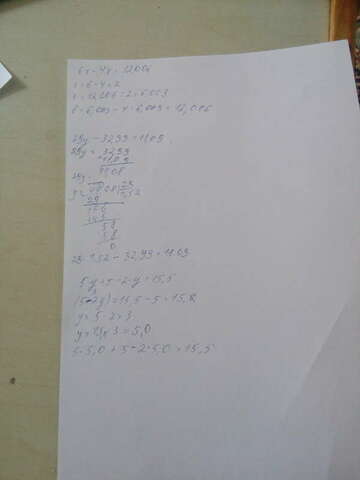 6x - 4x = 12,006
x = 6 - 4 = 2
x = 12,006 : 2 = 6,003
6 · 6,003 - 4 · 6,003 = 12,006
29y - 32,99 = 11,09
29y = 32,99
+ 11,09
44,08
29y
y = 44,08 | 29
29 1,52
150
145
58
58
0
29 · 1,52 - 32,99 = 11,09
5·y + 5 - 2·y = 15,5
= 15,5 - 5 =
y = 5 - 2 = 3
3 = 5,0
5·5,0 + 5 - 2·5,0 = 15,5